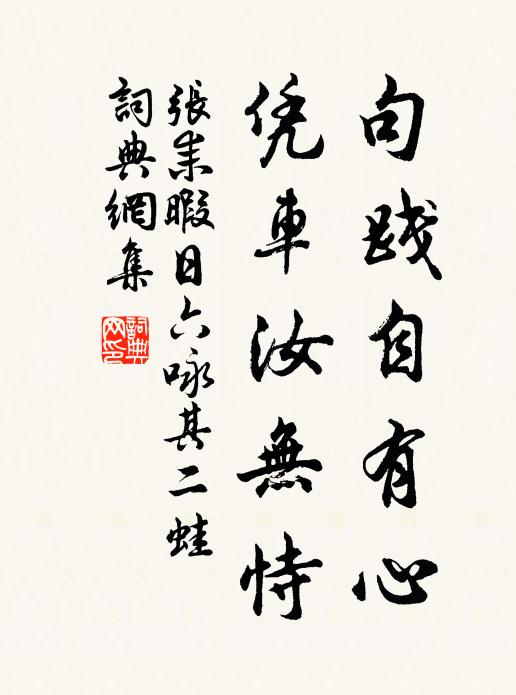 句践自有心
凭車汝無恃
張耒暇日六咏其二蛙
詞典網集
詞典网印